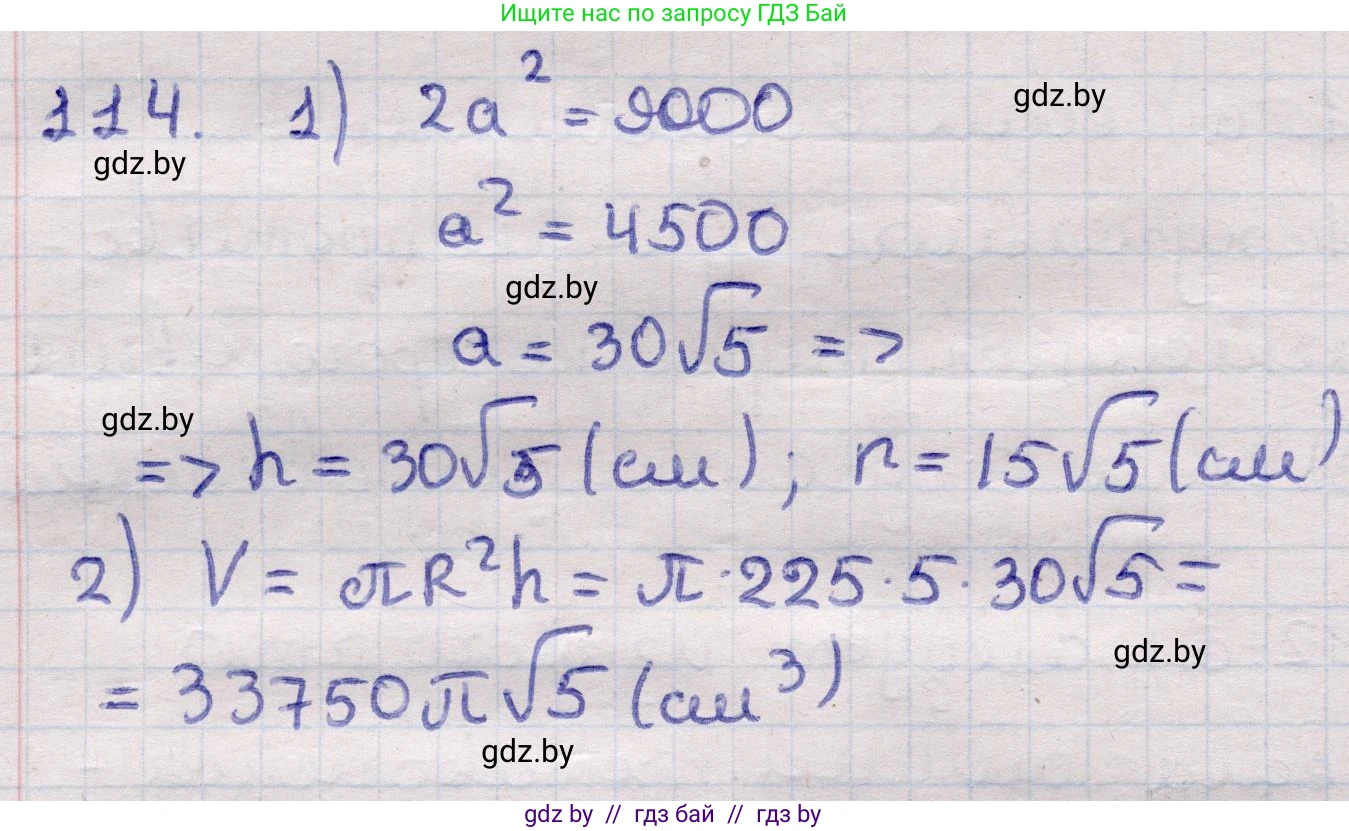 Ищите нас по запросу ГДЗ Бай
114. 1) 2a² = 9000
gdz.by
gdz.by
a² = 4500
gdz.by
a = 30√5 =>
gdz.by
=> h = 30√5 (см); r = 15√5 (см)
2) V = πR²h = π·225·5·30√5 =
gdz.by
= 33750π√5 (см³)
gdz.by
gdz.by // гдз бай // гдз by